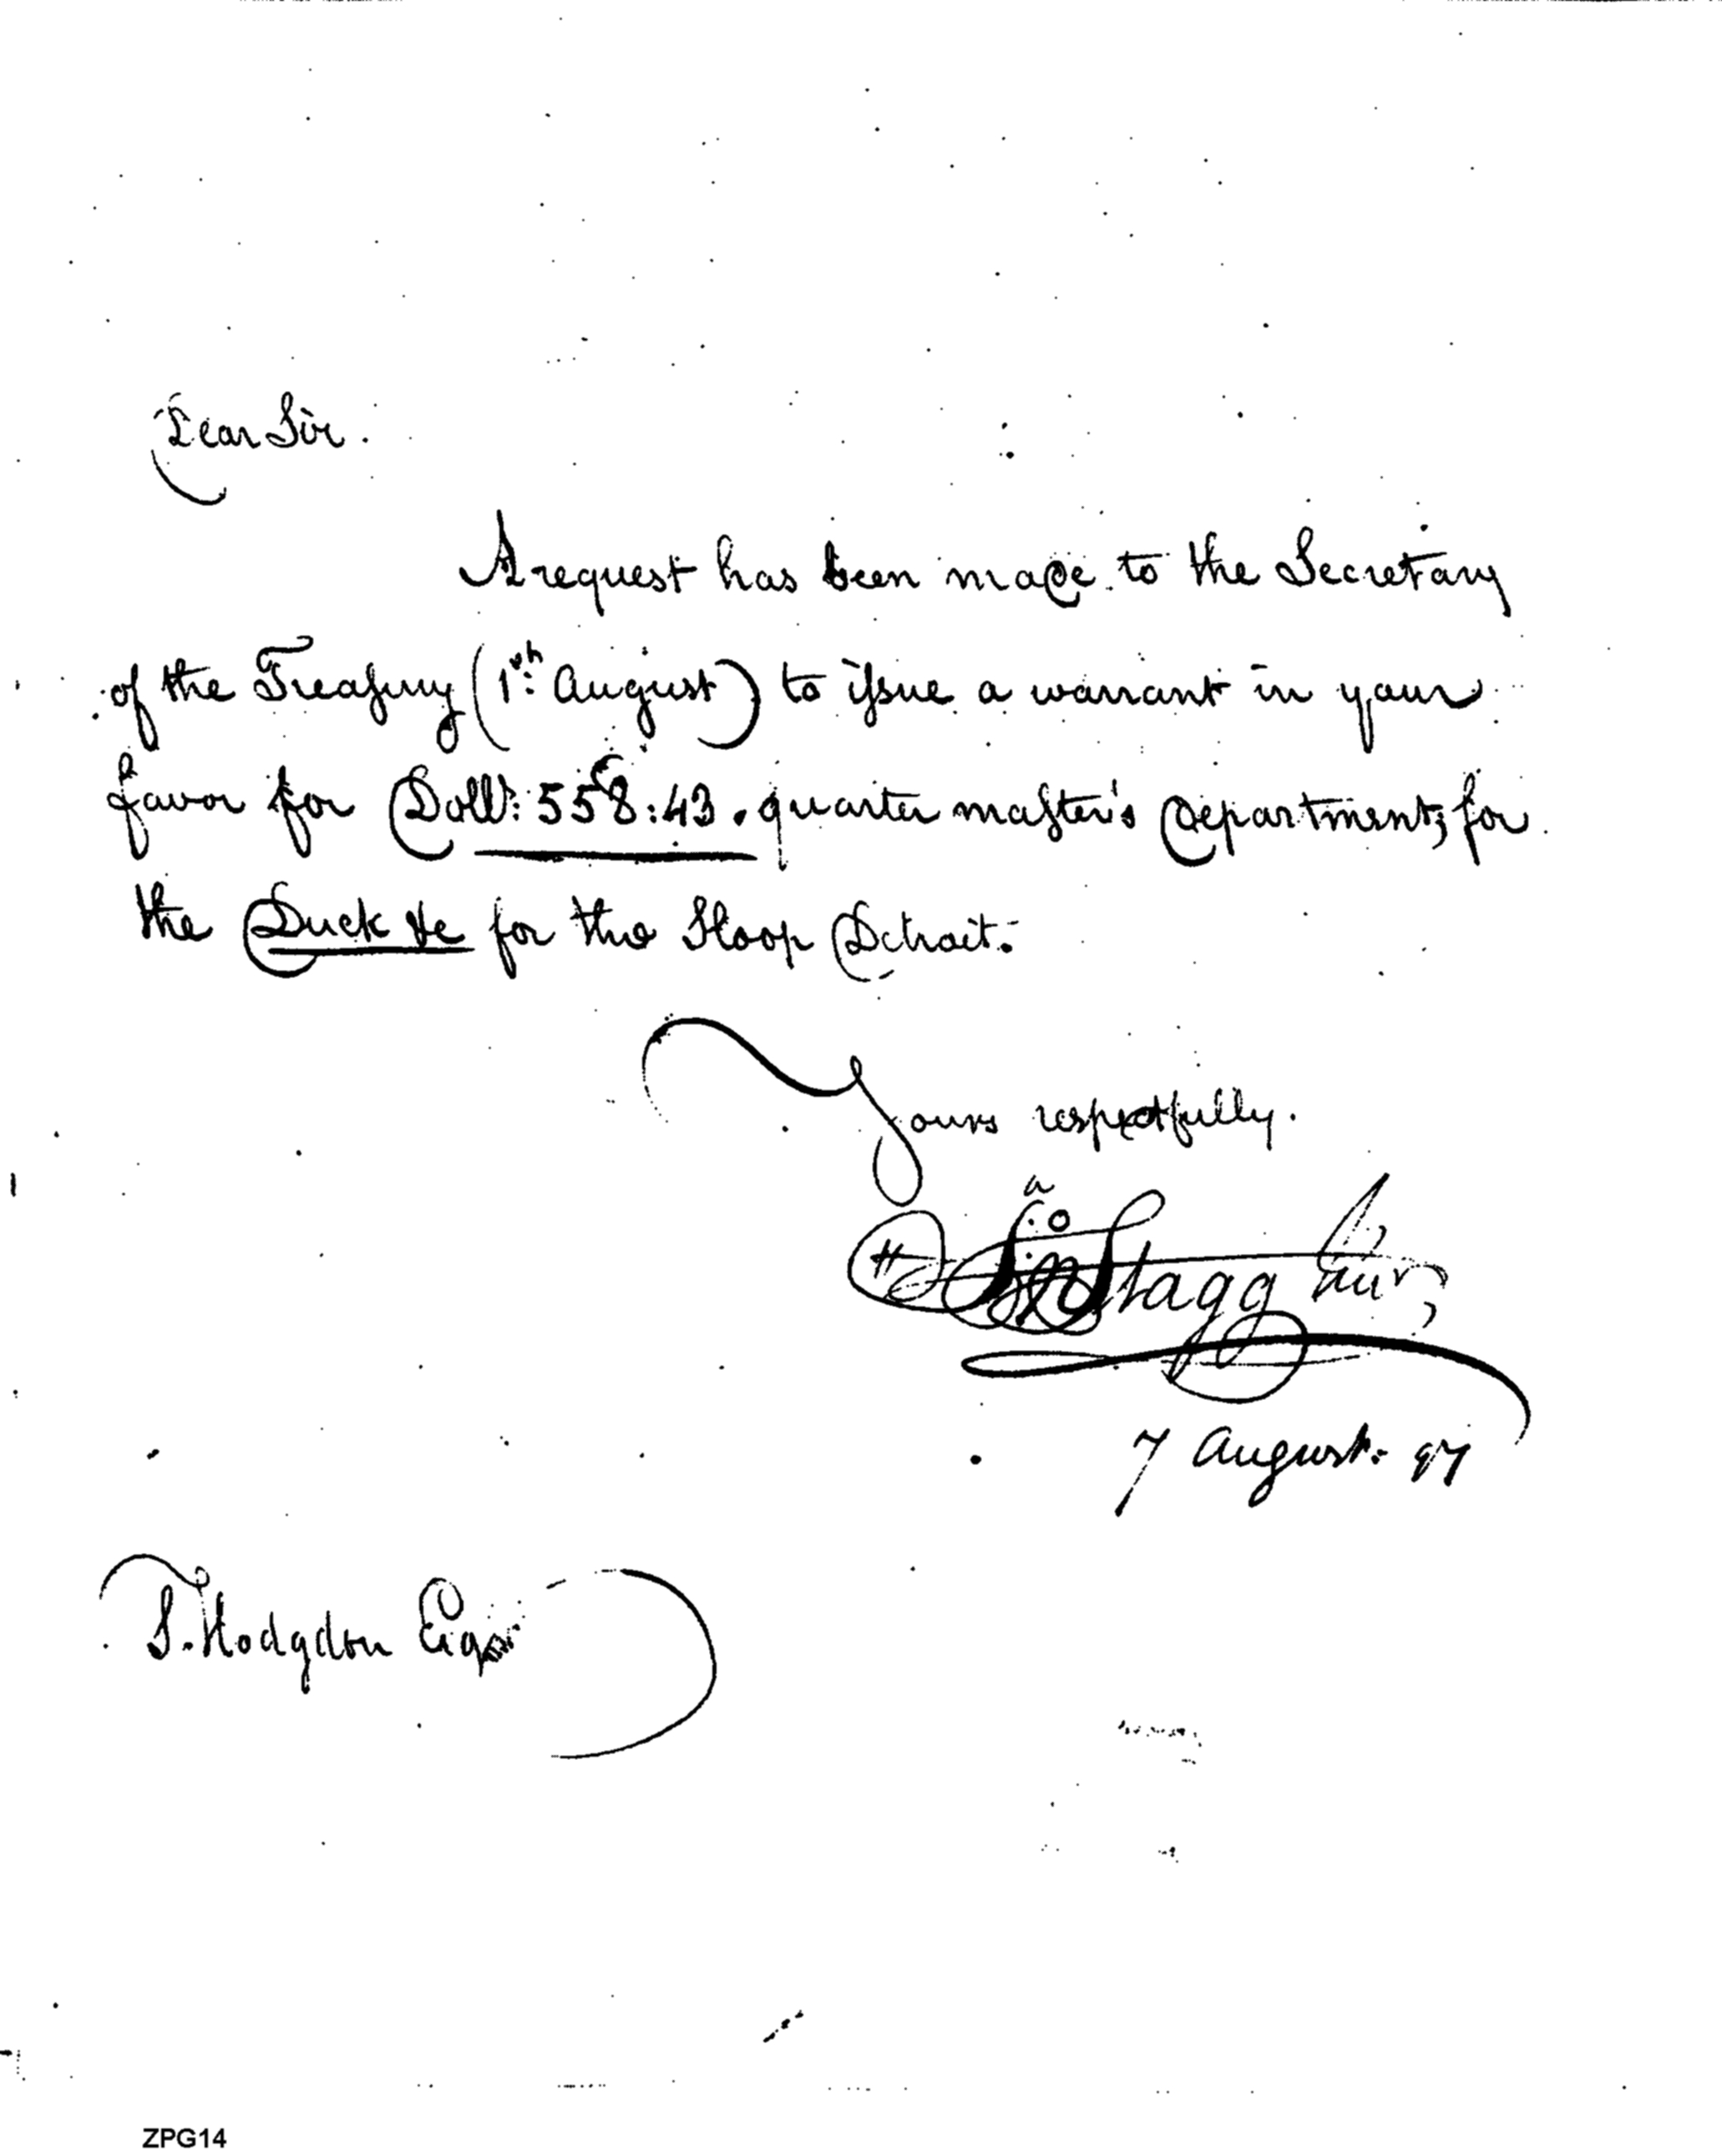 Dear Sir.
A request has been made to the Secretary
of the Treasury (1st: August) to issue a warrant in your
favor for Dolls: 558:43. quarter master's department; for
the Duck &c for the Sloop Detroit.
Yours respectfully.
Jno Stagg Junr
7 August. 97
S. Hodgdon Esqr
ZPG14